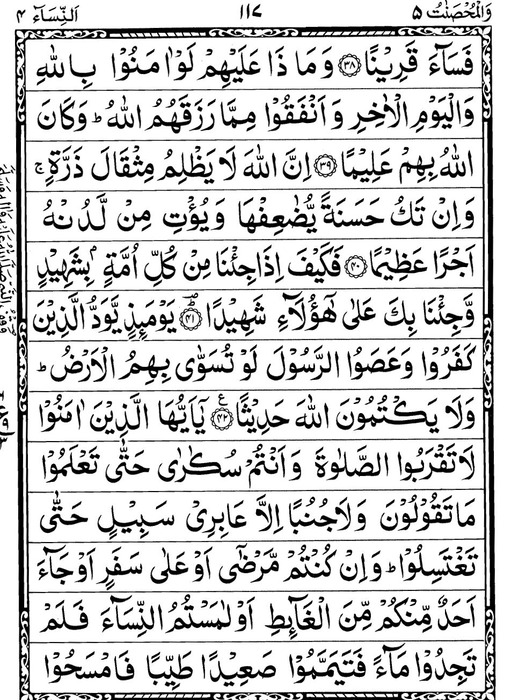 وَالْمُحْصَنٰتُ ٥
١١٧
اَلنِّسَآء ٤
فَسَآءَ قَرِيْنًا ﴿٣٨﴾ وَمَا ذَا عَلَيْهِمْ لَوْ اٰمَنُوْا بِاللّٰهِ
وَالْيَوْمِ الْاٰخِرِ وَاَنْفَقُوْا مِمَّا رَزَقَهُمُ اللّٰهُ ؕ وَكَانَ
اللّٰهُ بِهِمْ عَلِيْمًا ﴿٣٩﴾ اِنَّ اللّٰهَ لَا يَظْلِمُ مِثْقَالَ ذَرَّةٍ ۚ
وَاِنْ تَكُ حَسَنَةً يُّضٰعِفْهَا وَيُؤْتِ مِنْ لَّدُنْهُ
اَجْرًا عَظِيْمًا ﴿٤٠﴾ فَكَيْفَ اِذَا جِئْنَا مِنْ كُلِّ اُمَّةٍۭ بِشَهِيْدٍ
وَّجِئْنَا بِكَ عَلٰى هٰۤؤُلَآءِ شَهِيْدًا ﴿٤١﴾ يَوْمَئِذٍ يَّوَدُّ الَّذِيْنَ
كَفَرُوْا وَعَصَوُا الرَّسُوْلَ لَوْ تُسَوّٰى بِهِمُ الْاَرْضُ ؕ
وَلَا يَكْتُمُوْنَ اللّٰهَ حَدِيْثًا ﴿٤٢﴾ ع يٰۤاَيُّهَا الَّذِيْنَ اٰمَنُوْا
لَا تَقْرَبُوا الصَّلٰوةَ وَاَنْتُمْ سُكٰرٰى حَتّٰى تَعْلَمُوْا
مَا تَقُوْلُوْنَ وَلَا جُنُبًا اِلَّا عَابِرِيْ سَبِيْلٍ حَتّٰى
تَغْتَسِلُوْا ؕ وَاِنْ كُنْتُمْ مَّرْضٰۤى اَوْ عَلٰى سَفَرٍ اَوْ جَآءَ
اَحَدٌ مِّنْكُمْ مِّنَ الْغَآئِطِ اَوْ لٰمَسْتُمُ النِّسَآءَ فَلَمْ
تَجِدُوْا مَآءً فَتَيَمَّمُوْا صَعِيْدًا طَيِّبًا فَامْسَحُوْا